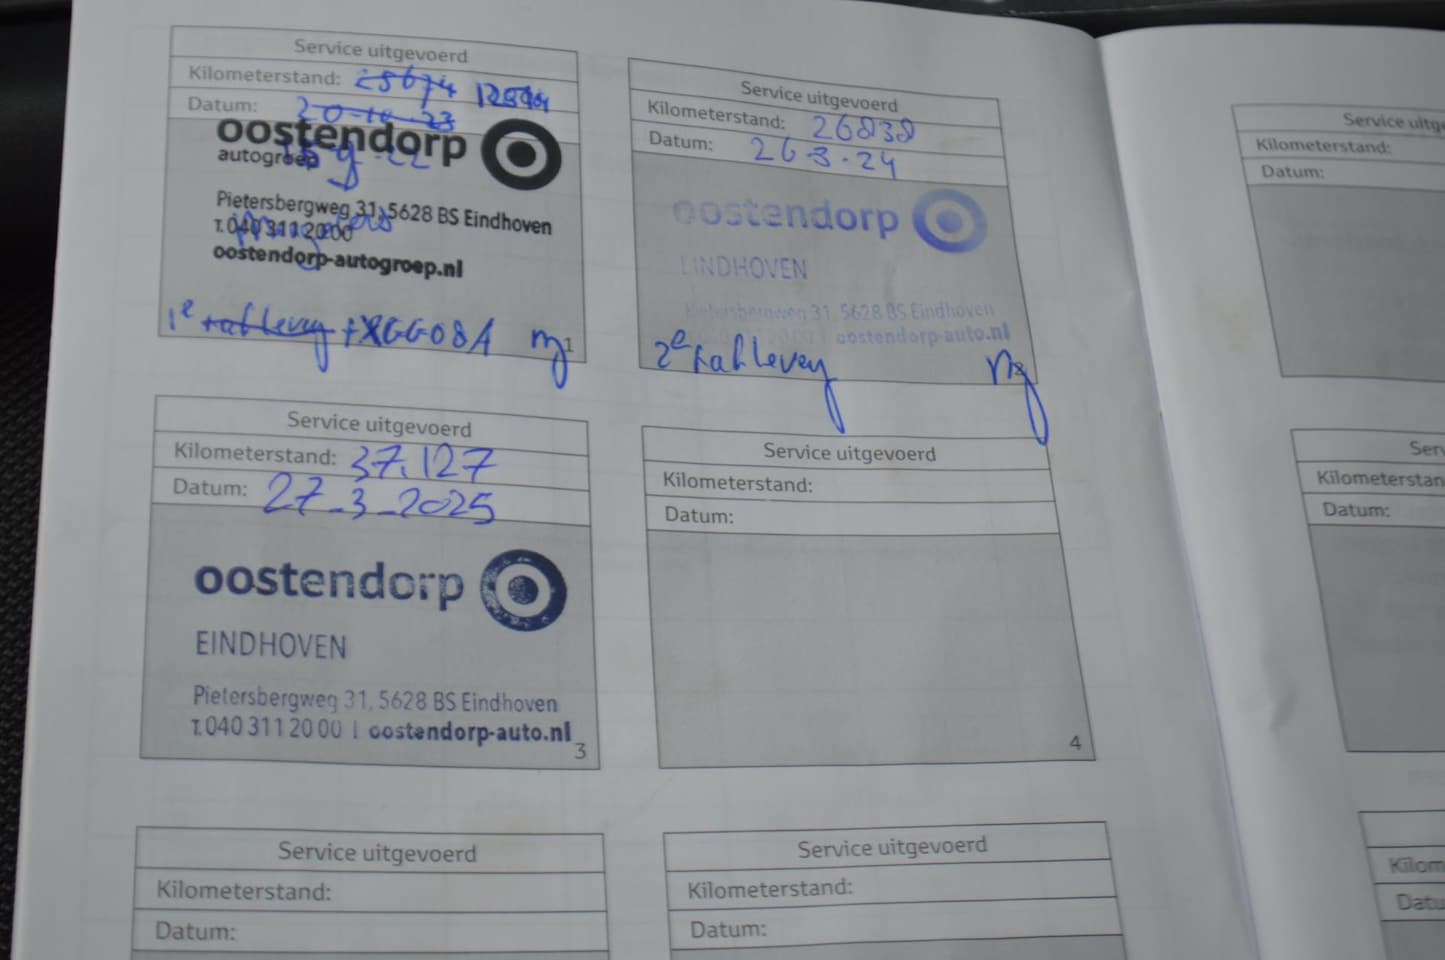 Service uitgevoerd
Kilometerstand: 25674
Datum: 20-10-23
oostendorp
autogroep
Pietersbergweg 31, 5628 BS Eindhoven
T. 040 311 20 00
oostendorp-autogroep.nl
1e aflevey + XGG08A
1
Service uitgevoerd
Kilometerstand: 26838
Datum: 26-3-24
oostendorp
EINDHOVEN
Pietersbergweg 31, 5628 BS Eindhoven
oostendorp-auto.nl
2e
Service uitgevoerd
Kilometerstand: 37.127
Datum: 27-3-2025
oostendorp
EINDHOVEN
Pietersbergweg 31, 5628 BS Eindhoven
T. 040 311 20 00 | oostendorp-auto.nl
3
Service uitgevoerd
Kilometerstand:
Datum:
4
Service uitgevoerd
Kilometerstand:
Datum:
Service uitgevoerd
Kilometerstand:
Datum:
Service uitg
Kilometerstand:
Datum:
Ser
Kilometerstan
Datum:
Kilom
Datu